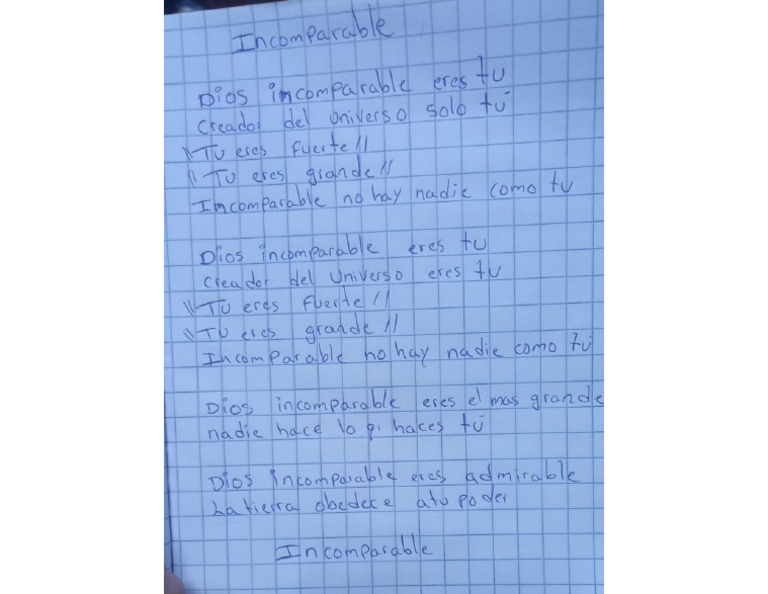 Incomparable
Dios incomparable eres tu
Creador del Universo solo tú
\\Tu eres fuerte//
\\Tu eres grande//
Imcomparable no hay nadie como tu
Dios incomparable eres tu
Creador del Universo eres tu
\\Tu eres fuerte//
\\Tu eres grande//
Incomparable no hay nadie como tú
Dios incomparable eres el mas grande
nadie hace lo q. haces tú
Dios incomparable eres admirable
La tierra obedece a tu poder
Incomparable